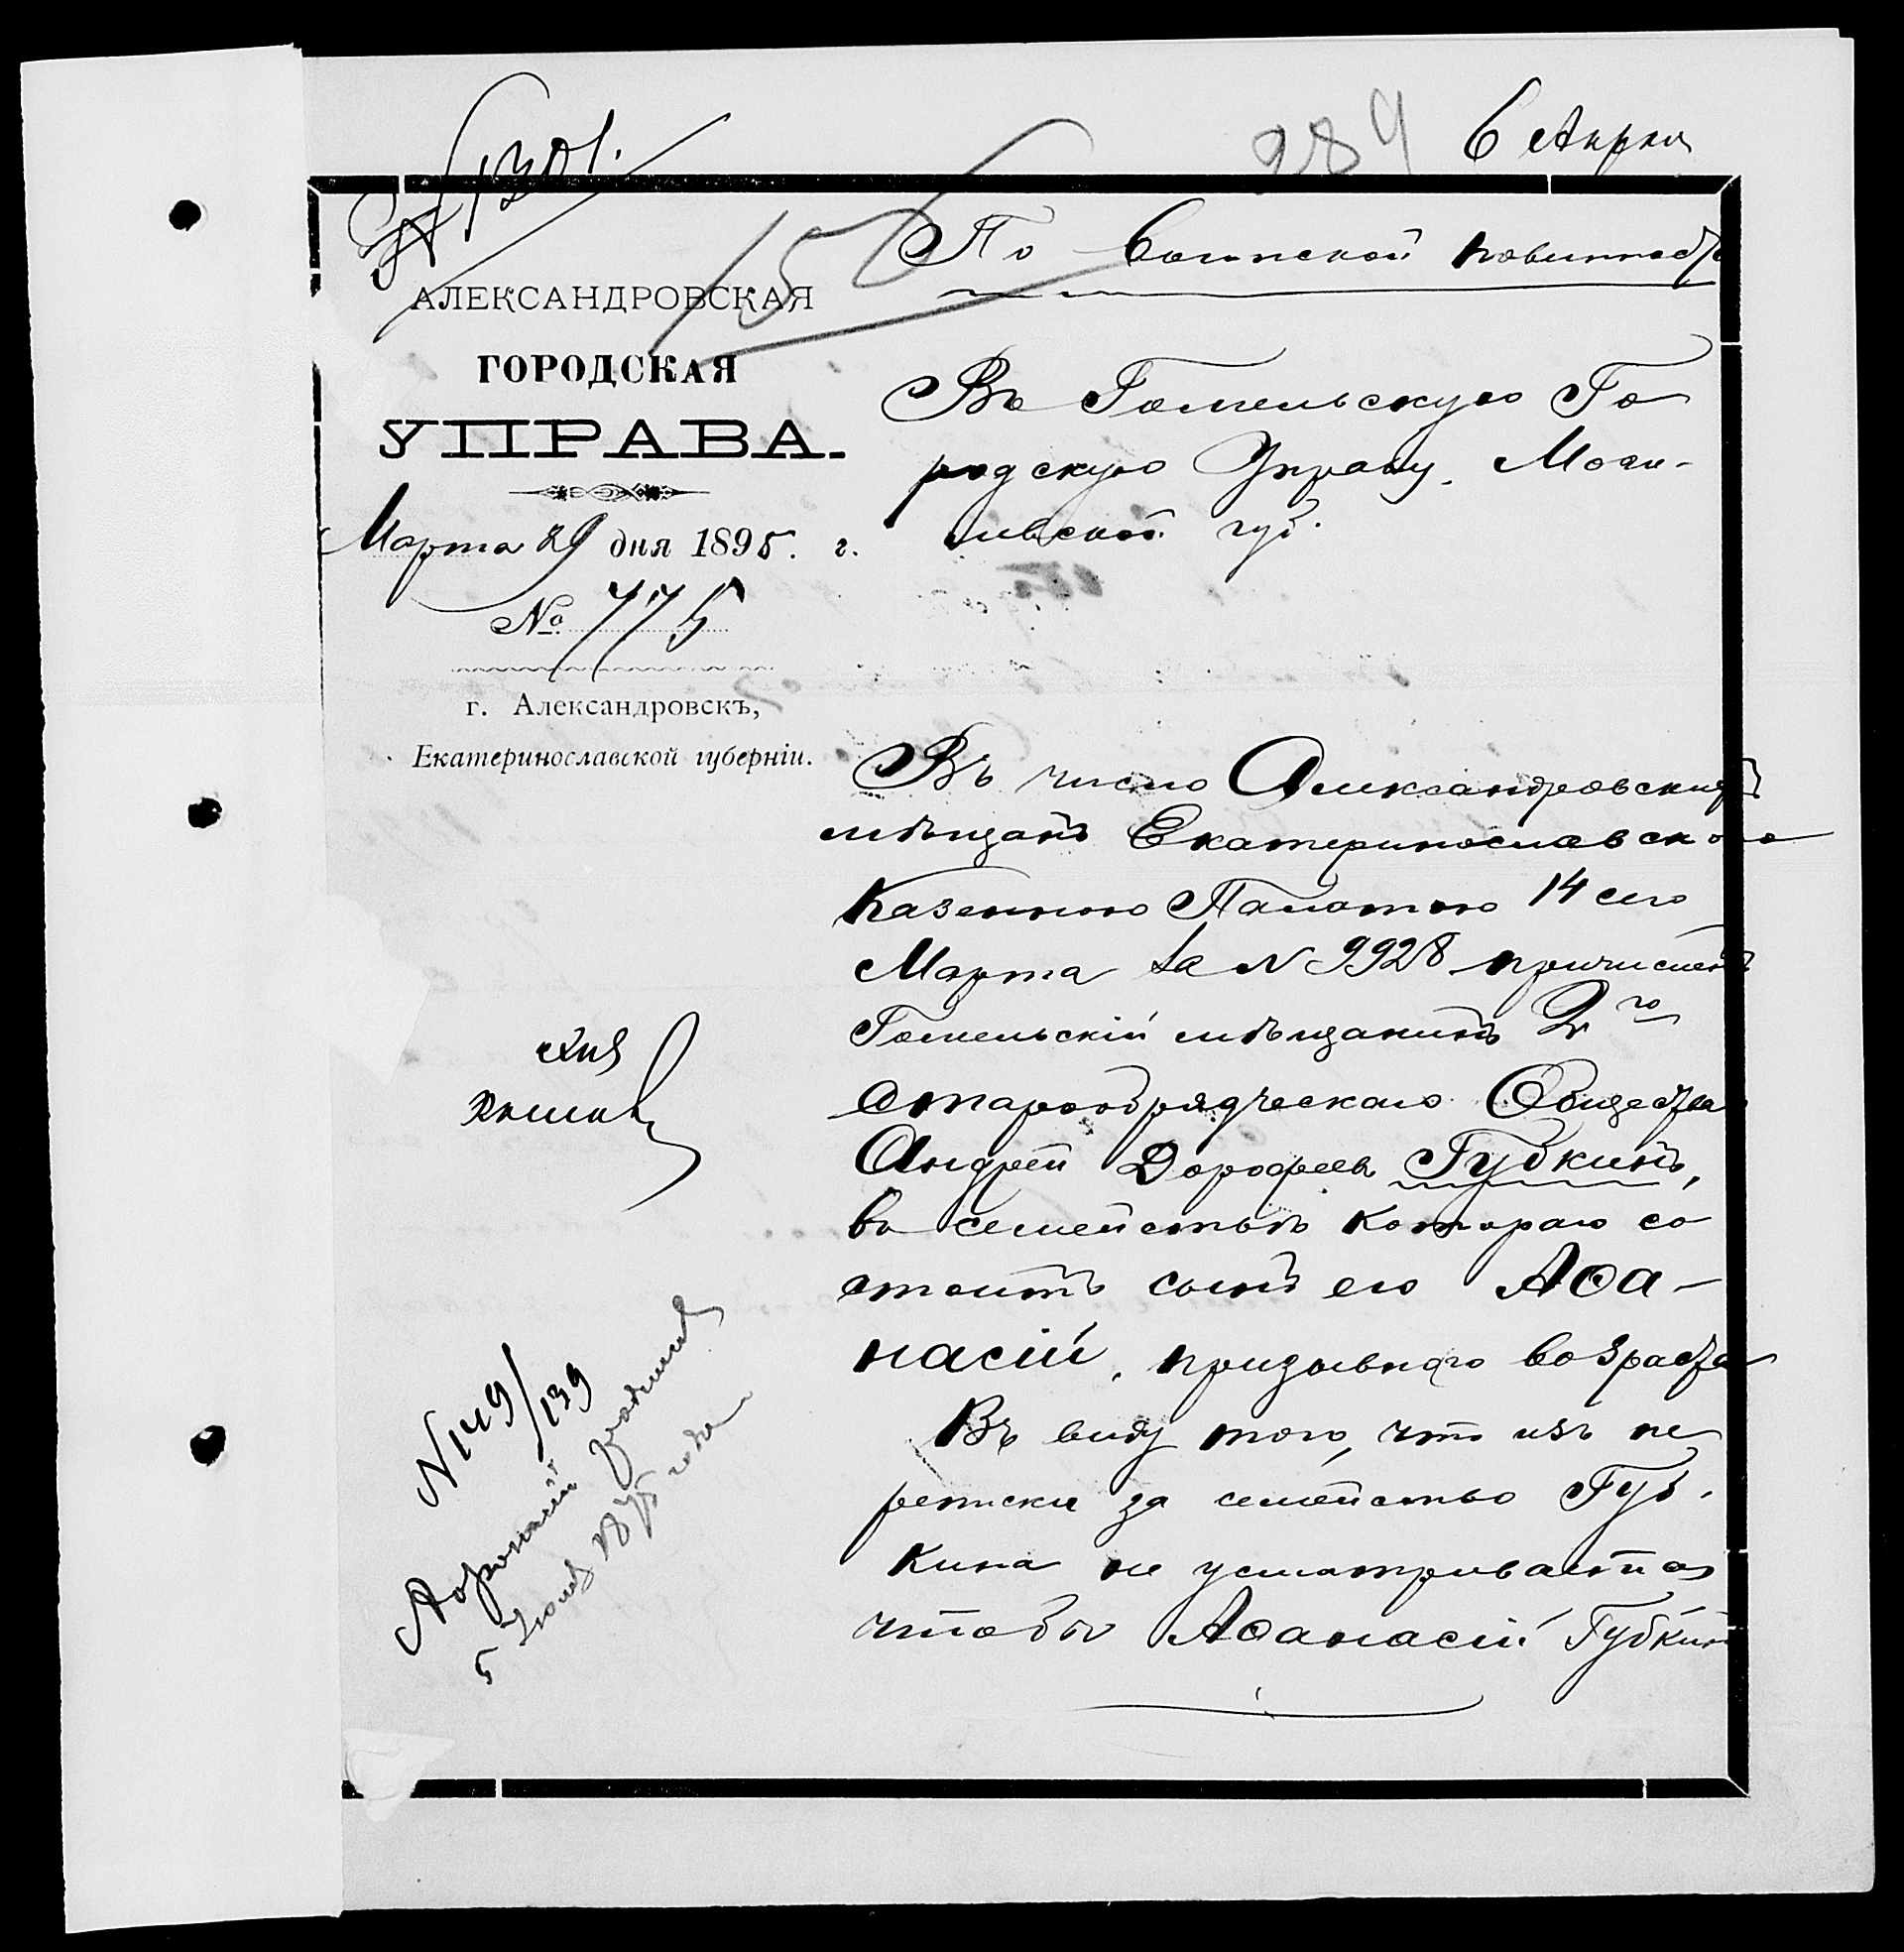 № 1301.
284
6 Апреля
150
По воинской повинности
АЛЕКСАНДРОВСКАЯ
ГОРОДСКАЯ
УПРАВА.
Марта 29 дня 1895. г.
№ 775
г. Александровскъ,
Екатеринославской губерніи.
Въ Гомельскую Го
родскую Управу, Моги-
левской губ.
Въ число Александровскихъ
мѣщанъ Екатеринославскою
Казенною Палатою 14 сего
Марта за № 9928 причисленъ
Гомельскій мѣщанинъ 2го
старообрядческаго Общества
Андрей Дорофеевъ Губкинъ,
въ семействѣ котораго со
стоитъ сынъ его Аѳа-
насій, призывнаго возраста
Въ виду того, что изъ пе
реписки за семейство Губ-
кина не усматривается
чтобы Аѳанасій Губкинъ
N 149/139
родился
5 Іюля 187 года